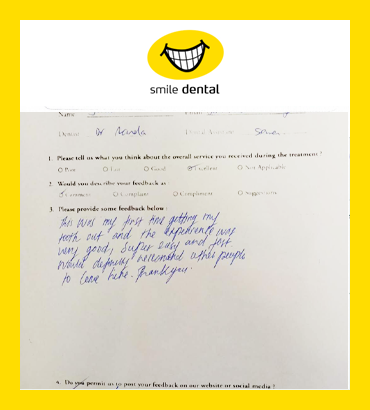 smile dental
Name
Dentist Dr
1. Please tell us what you think about the overall service you received during the treatment?
Poor Fair Good Excellent Not Applicable
2. Would you describe your feedback as :
Comment Complaint Compliment Suggestion
3. Please provide some feedback below :
this was my first time getting my
tooth out and the experience was
very good, super easy and fast
would definitely recommend other people
to come here. Thankyou.
4. Do you permit us to post your feedback on our website or social media ?